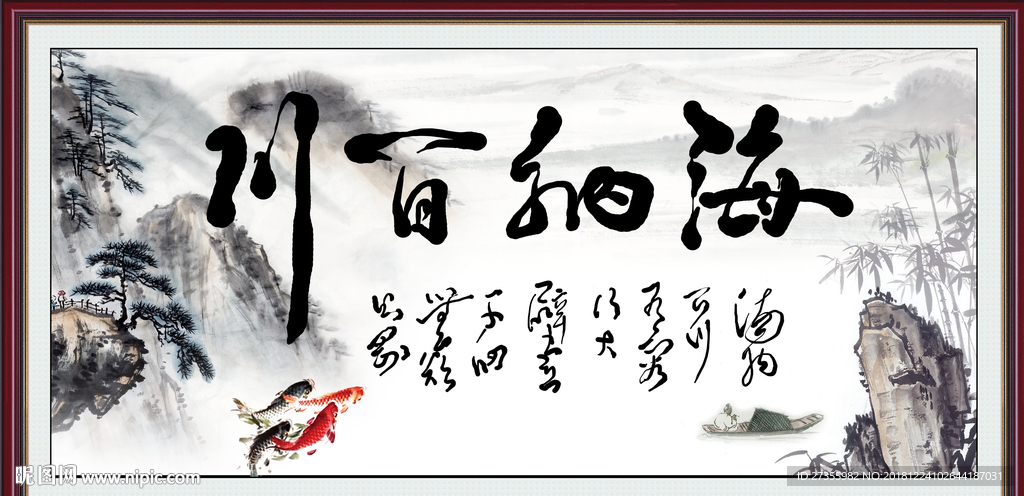 海納百川
海納
百川
有容
乃大
壁立
千仞
無欲
則剛
昵图网 www.nipic.com
ID:27355982 NO:20181224102644187031